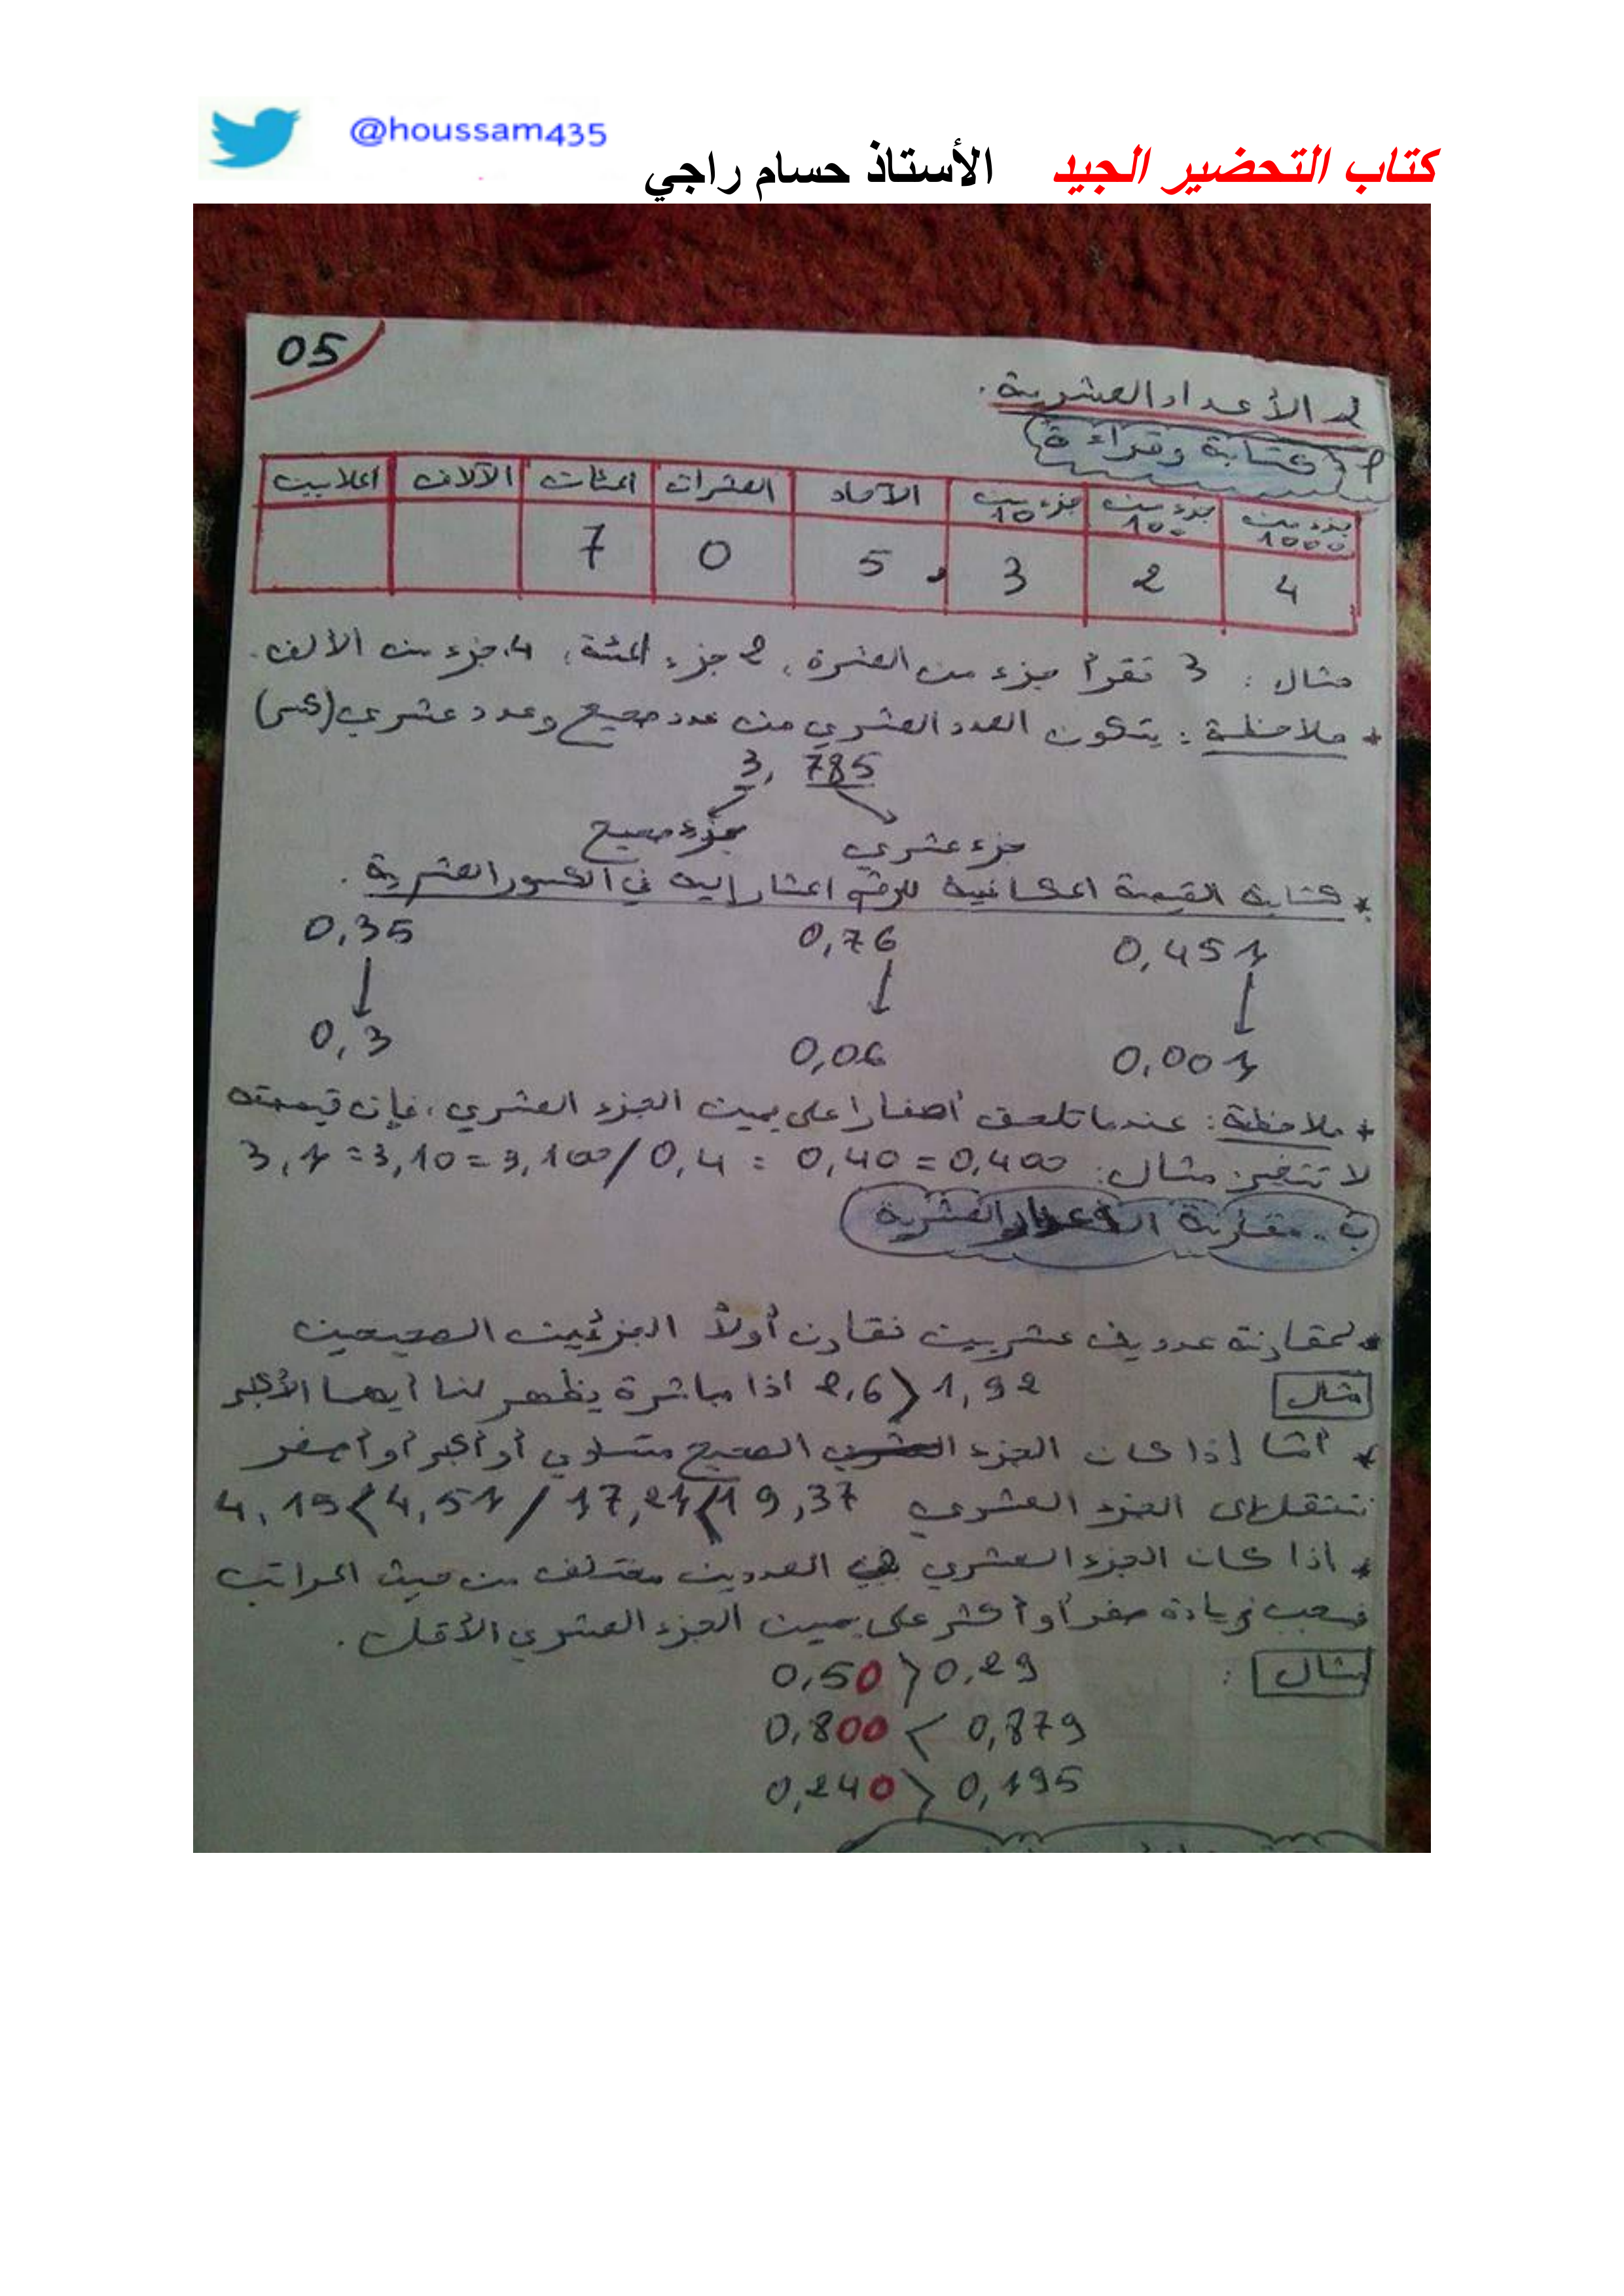 @houssam435
كتاب التحضير الجيد الأستاذ حسام راجي
05
2. الأعداد العشرية.
أ) كتابة وقراءة
جزء من 1000 جزء من 100 جزء من 10 الآحاد العشرات المئات الآلاف الملايين
7 0 5 , 3 2 4
مثال : 3 تقرأ جزء من العشرة ، 2 جزء المئة ، 4 جزء من الألف.
* ملاحظة : يتكون العدد العشري من عدد صحيح وعدد عشري (كسر)
3, 785
جزء صحيح جزء عشري
* كتابة القيمة المكانية للرقم المشار إليه في الكسور العشرية .
0,35 0,76 0,451
0,3 0,06 0,001
* ملاحظة : عندما تلحق أصفارا على يمين الجزء العشري ، فإن قيمته
لا تتغير مثال: 3,1 = 3,10 = 3,100 / 0,4 = 0,40 = 0,400
ب. مقارنة الأعداد العشرية
* لمقارنة عددين عشريين نقارن أولاً الجزئين الصحيحين
مثال 2,6 > 1,92 اذا مباشرة يظهر لنا أيهما الأكبر
* أمّا إذا كان الجزء الصحيح متساوي أو أكبر أو أصغر
ننتقل إلى الجزء العشري 4,15 < 4,51 / 17,21 < 19,37
* اذا كان الجزء العشري في العددين مختلف من حيث المراتب
فيجب زيادة صفر أو أكثر على يمين الجزء العشري الأقل .
مثال : 0,50 > 0,29
0,800 < 0,879
0,240 > 0,195